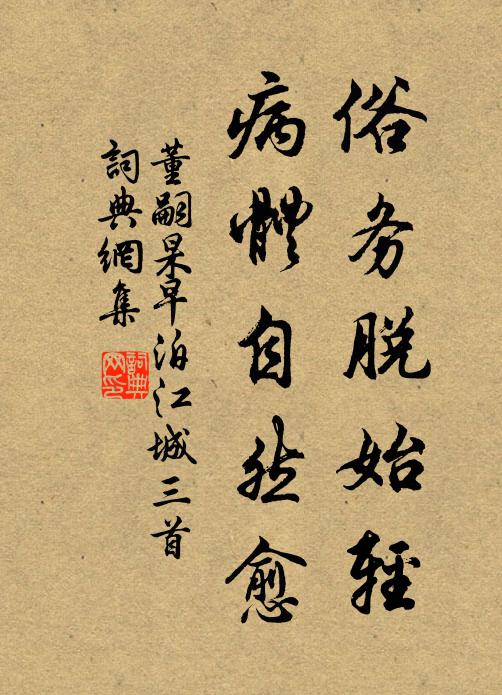 俗务脱始輕
病體自然愈
董嗣杲早泊江城三首
詞典網集
詞典网印